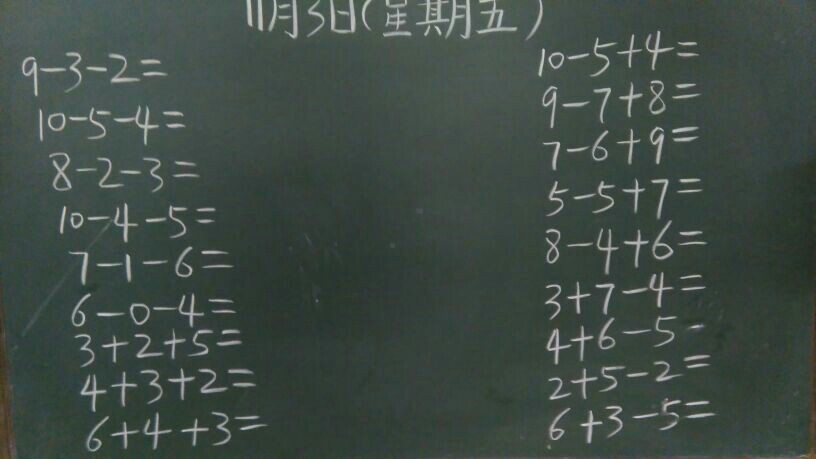 11月3日(星期五)
9-3-2=
10-5-4=
8-2-3=
10-4-5=
7-1-6=
6-0-4=
3+2+5=
4+3+2=
6+4+3=
10-5+4=
9-7+8=
7-6+9=
5-5+7=
8-4+6=
3+7-4=
4+6-5-
2+5-2=
6+3-5=